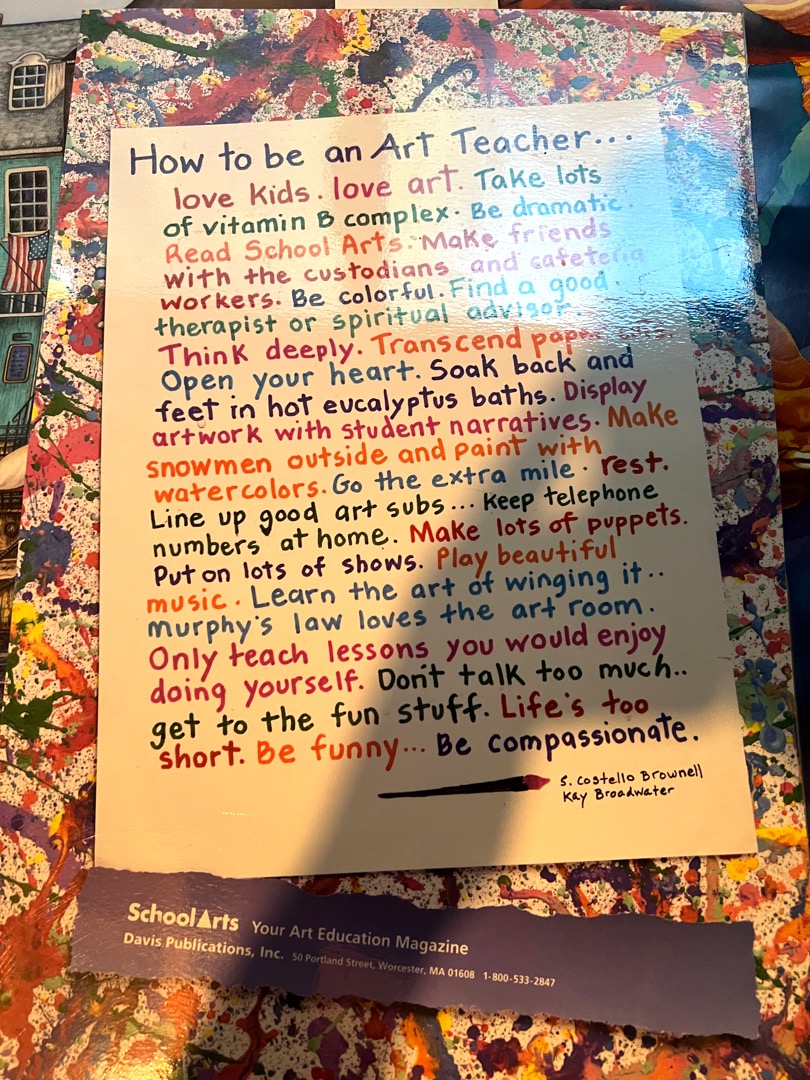 How to be an Art Teacher...
love kids. love art. Take lots
of vitamin B complex. Be dramatic.
Read School Arts. Make friends
with the custodians and cafeteria
workers. Be colorful. Find a good
therapist or spiritual advisor.
Think deeply. Transcend
Open your heart. Soak back and
feet in hot eucalyptus baths. Display
artwork with student narratives. Make
snowmen outside and paint with
watercolors. Go the extra mile. rest.
Line up good art subs... Keep telephone
numbers at home. Make lots of puppets.
Put on lots of shows. Play beautiful
music. Learn the art of winging it..
murphy's law loves the art room.
Only teach lessons you would enjoy
doing yourself. Don't talk too much..
get to the fun stuff. Life's too
short. Be funny... Be compassionate.
S. Costello Brownell
Kay Broadwater
SchoolArts Your Art Education Magazine
Davis Publications, Inc. 50 Portland Street, Worcester, MA 01608 1-800-533-2847